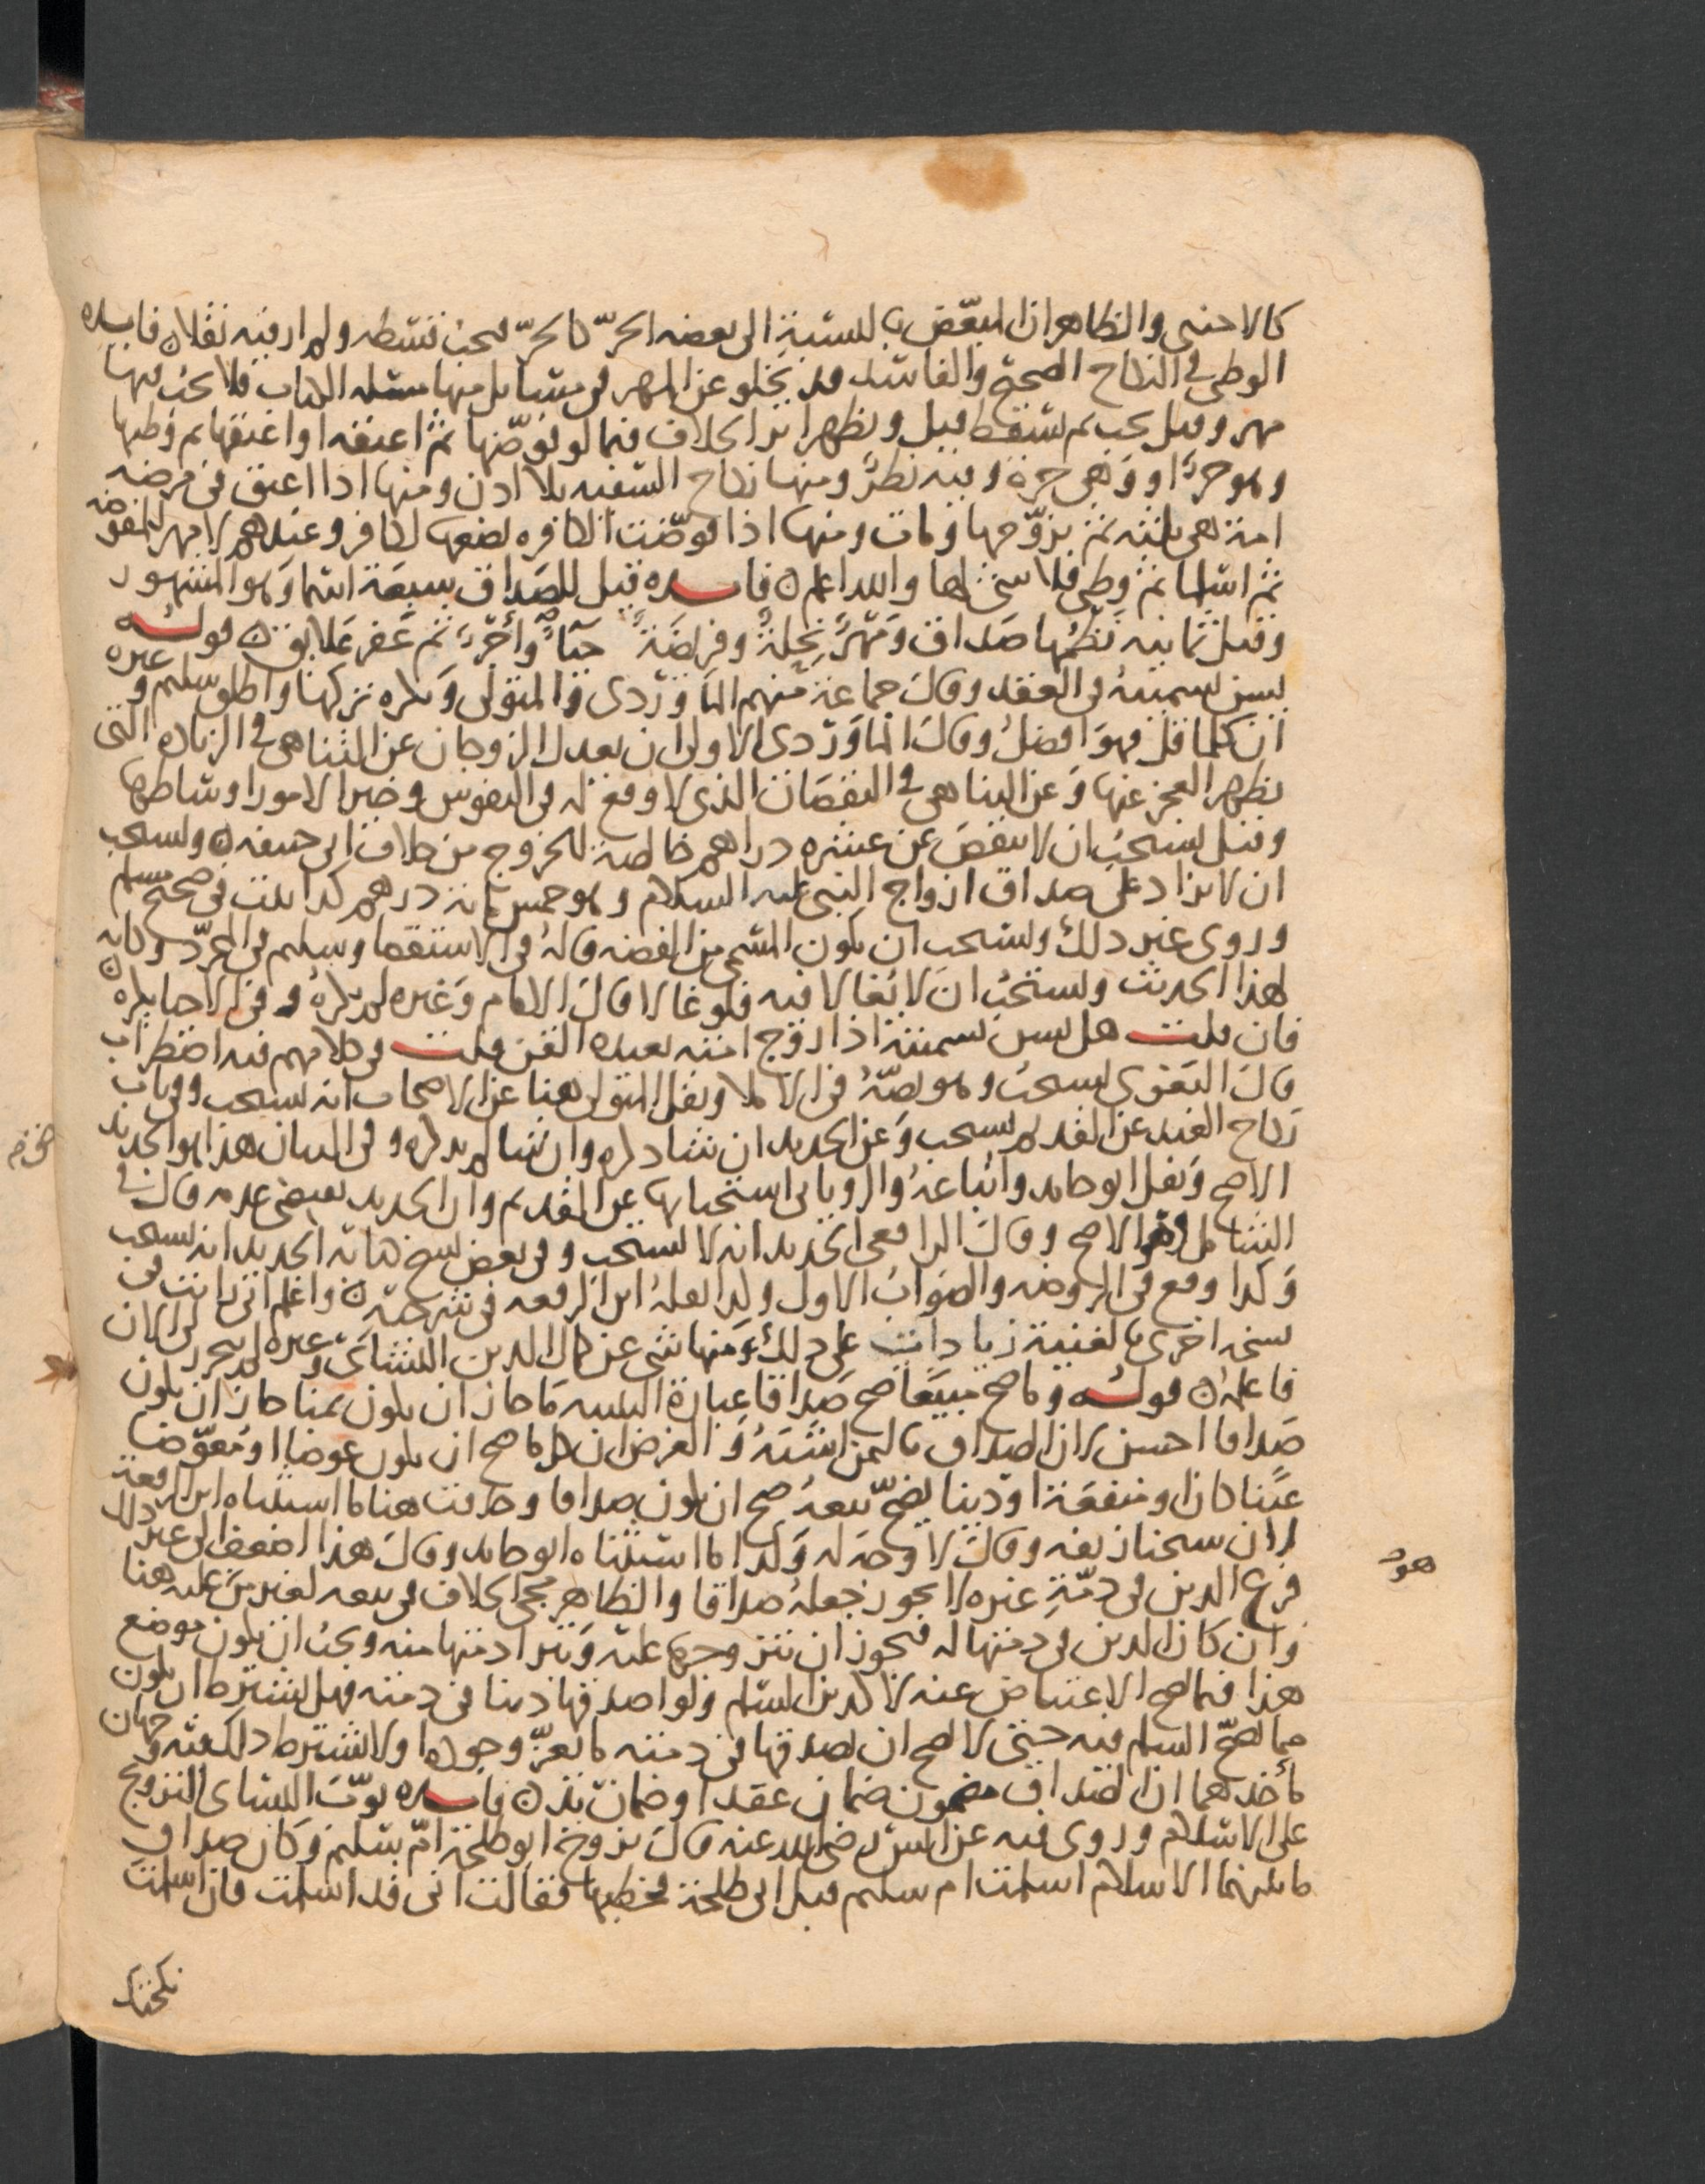 كالاجنبي والظاهر ان المبعّض بالنسبة الى بعضه الحرّ كالحرّ فيجب قسطه ولم ار فيه نقلا ن فايده
الوطي في النكاح الصحيح والفاسد قد يخلو عن المهر في مسايل منها مسئلة الكتاب فلا يجب فيها
مهر وقيل يجب ثم يسقط قيل ويظهر اثر الخلاف فيما لو فوّضها ثم اعتقه او اعتقها ثم وطيها
وهو حرٌ او وهي حرة وفيه نظرٌ ومنها نكاح السفيه بلا اذن ومنها اذا اعتق في مرضه
امة هي ثلثه ثم تزوّجها ومات ومنها اذا فوّضت الكافره بضعها لكافر وعندهم لا مهر للمفوضه
ثم اسلما ثم وطي فلا شي لها والله اعلم ن فايده قيل للصداق سبعة اسما وهو المشهور
وقيل ثمانيه نظمها صداق ومهرٌ نحلةٌ وفريضةٌ حباءٌ وأجرٌ ثم عقر علايق ن قوله
يسن تسميته في العقد وقال جماعة منهم الماوردي والمتولي ويكره تركها واطلق سليم وغيره
ان كلما قل فهو افضل وقال الماوردي الاولى ان يعدل الزوجان عن التناهي في الزياده التي
يظهر العجز عنها وعن التناهي في النقصان الذي لا وقع له في النفوس وخير الامور اوساطها
وقيل يستحب ان لا ينقص عن عشره دراهم خالصة للخروج من خلاف ابي حنيفه ن ويستحب
ان لا يزاد على صداق ازواج النبي عليه السلام وهو خمس ماية درهم كذا ثبت في صحيح مسلم
وروي غير ذلك ويستحب ان يكون المسمى من الفضه قاله في الاستقصا وسليم في المجرّد وكانه
لهذا الحديث ويستحب ان لا يغالا فيه فلو غالا قال الامام وغيره لم يكره وفي الاحيا يكره ن
فان قلت هل يسن تسميته اذا زوج امته بعبده القن قلت في كلامهم فيه اضطراب
قال البغوي يستحب وهو نصّه في الاملا ونقل المتولي هنا عن الاصحاب انه يستحب وفي باب
نكاح العبد عن القديم يستحب وعن الجديد ان شا ذكره وان شا لم يذكره وفي البيان هذا هو الجديد
الاصح ونقل ابو حامد واتباعه والروياني استحبابها عن القديم وان الجديد يقتضي عدمه قال في
الشامل وهو الاصح وقال الرافعي الجديد انه لا يستحب وفي بعض نسخ كتابه الجديد انه يستحب
وكذا وقع في الروضه والصواب الاول ولذا نقله ابن الرفعه في شرحه ن واعلم اني رايت في
نسخه اخرى بالغنية زيادات على ذلك ومنها شي عن كمال الدين النشائي وغيره لم يتحرر لي الان
فاعلمه ن قوله وما صح مبيعا صح صداقا عبارة التنبيه ما جاز ان يكون ثمنا جاز ان يكون
صداقا احسن لان الصداق بالثمن اشبه والغرض ان كل ما صح ان يكون عوضا او معوّضا
عينا كان او منفعة او دينا يصحّ بيعه صح ان يكون صداقا وحذفت هنا ما استثناه ابن الرفعة
لان شيخنا زيفه وقال لا وجه له وكذا ما استثناه ابو حامد وقال هذا اضعف الى غير ذلك
فرع الدين في ذمّةِ غيره لا يجوز جعله صداقا والظاهر مجي الخلاف في بيعه لغير من عليه هنا
وان كان الدين في ذمتها له فيجوز ان يتزوجها عليه وتبرا ذمتها منه ويجب ان يكون موضع
هذا فيما يصح الاعتياض عنه لا كدين السلم ولو اصدقها دينا في ذمته فهل يشترط ان يكون
مما يصحّ السلم فيه حتى لا يصح ان يصدقها في ذمته ما يعزّ وجوده او لا يشترط ذلك فيه وجهان
مأخذهما ان الصداق مضمون ضمان عقد او ضمان يد ن فايده بوّب النسائي التزويج
على الاسلام وروى فيه عن انس رضي الله عنه قال تزوج ابو طلحة امّ سليم وكان صداق
ما بينهما الاسلام اسلمت ام سليم قبل ابي طلحة فخطبها فقالت اني قد اسلمت فان اسلمت
نكحتك
هو